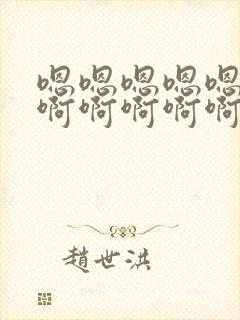 嗯嗯嗯嗯嗯
啊啊啊啊啊
趙世洪